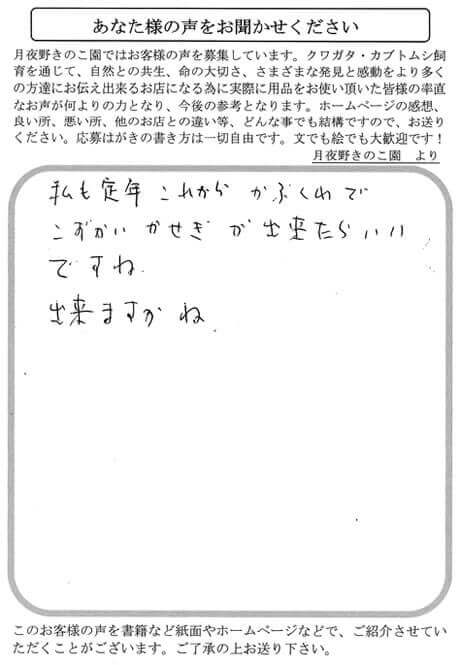 あなた様の声をお聞かせください
月夜野きのこ園ではお客様の声を募集しています。クワガタ・カブトムシ飼
育を通じて、自然との共生、命の大切さ、さまざまな発見と感動をより多く
の方達にお伝え出来るお店になる為に実際に用品をお使い頂いた皆様の率直
なお声が何よりの力となり、今後の参考となります。ホームページの感想、
良い所、悪い所、他のお店との違い等、どんな事でも結構ですので、お送り
ください。応募はがきの書き方は一切自由です。文でも絵でも大歓迎です！
月夜野きのこ園　より
私も定年 これから かぶくわで
こずかい かせぎ が 出来たらいい
ですね
出来ますか ね
このお客様の声を書籍など紙面やホームページなどで、ご紹介させてい
ただくことがございます。ご了承の上お送り下さい。